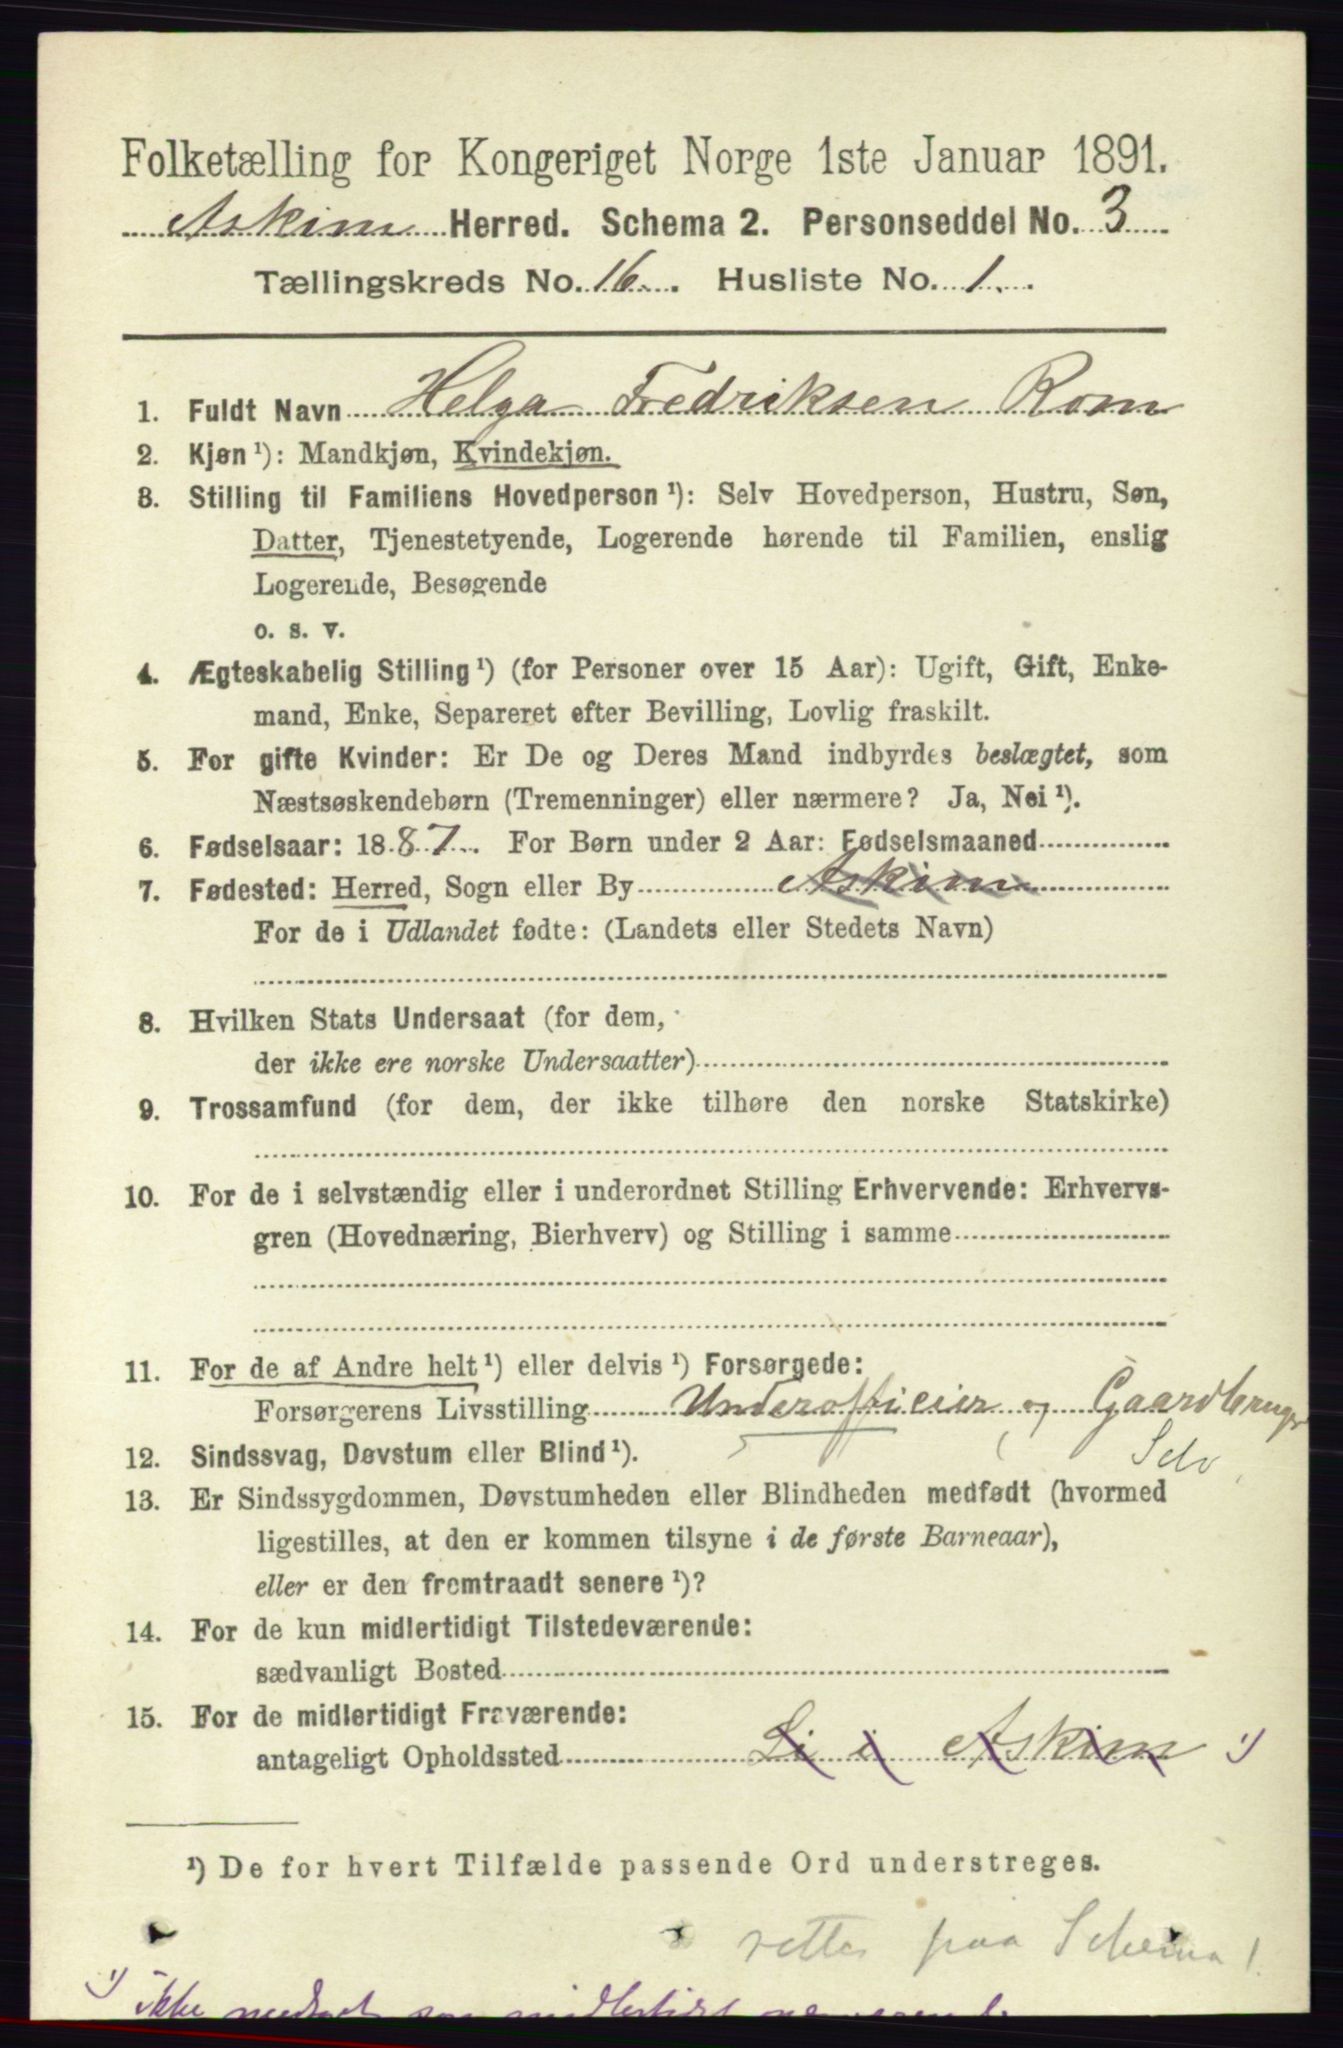 Folketælling for Kongeriget Norge 1ste Januar 1891.
Askim Herred. Schema 2. Personseddel No. 3
Tællingskreds No. 16. Husliste No. 1.
1. Fuldt Navn Helga Fredriksen Rom
2. Kjøn ¹): Mandkjøn, Kvindekjøn.
3. Stilling til Familiens Hovedperson ¹): Selv Hovedperson, Hustru, Søn,
Datter, Tjenestetyende, Logerende hørende til Familien, enslig
Logerende, Besøgende
o. s. v.
4. Ægteskabelig Stilling ¹) (for Personer over 15 Aar): Ugift, Gift, Enke-
mand, Enke, Separeret efter Bevilling, Lovlig fraskilt.
5. For gifte Kvinder: Er De og Deres Mand indbyrdes beslægtet, som
Næstsøskendebørn (Tremenninger) eller nærmere? Ja, Nei ¹).
6. Fødselsaar: 1887. For Børn under 2 Aar: Fødselsmaaned
7. Fødested: Herred, Sogn eller By Askim
For de i Udlandet fødte: (Landets eller Stedets Navn)
8. Hvilken Stats Undersaat (for dem,
der ikke ere norske Undersaatter)
9. Trossamfund (for dem, der ikke tilhøre den norske Statskirke)
10. For de i selvstændig eller i underordnet Stilling Erhvervende: Erhvervs-
gren (Hovednæring, Bierhverv) og Stilling i samme
11. For de af Andre helt ¹) eller delvis ¹) Forsørgede:
Forsørgerens Livsstilling Underofficier og Gaardbruger
Selv
12. Sindssvag, Døvstum eller Blind ¹).
13. Er Sindssygdommen, Døvstumheden eller Blindheden medfødt (hvormed
ligestilles, at den er kommen tilsyne i de første Barneaar),
eller er den fremtraadt senere ¹)?
14. For de kun midlertidigt Tilstedeværende:
sædvanligt Bosted
15. For de midlertidigt Fraværende:
antageligt Opholdssted Li i Askim ¹)
¹) De for hvert Tilfælde passende Ord understreges.
rettes paa Schema 1.
¹) ikke som midlertidigt